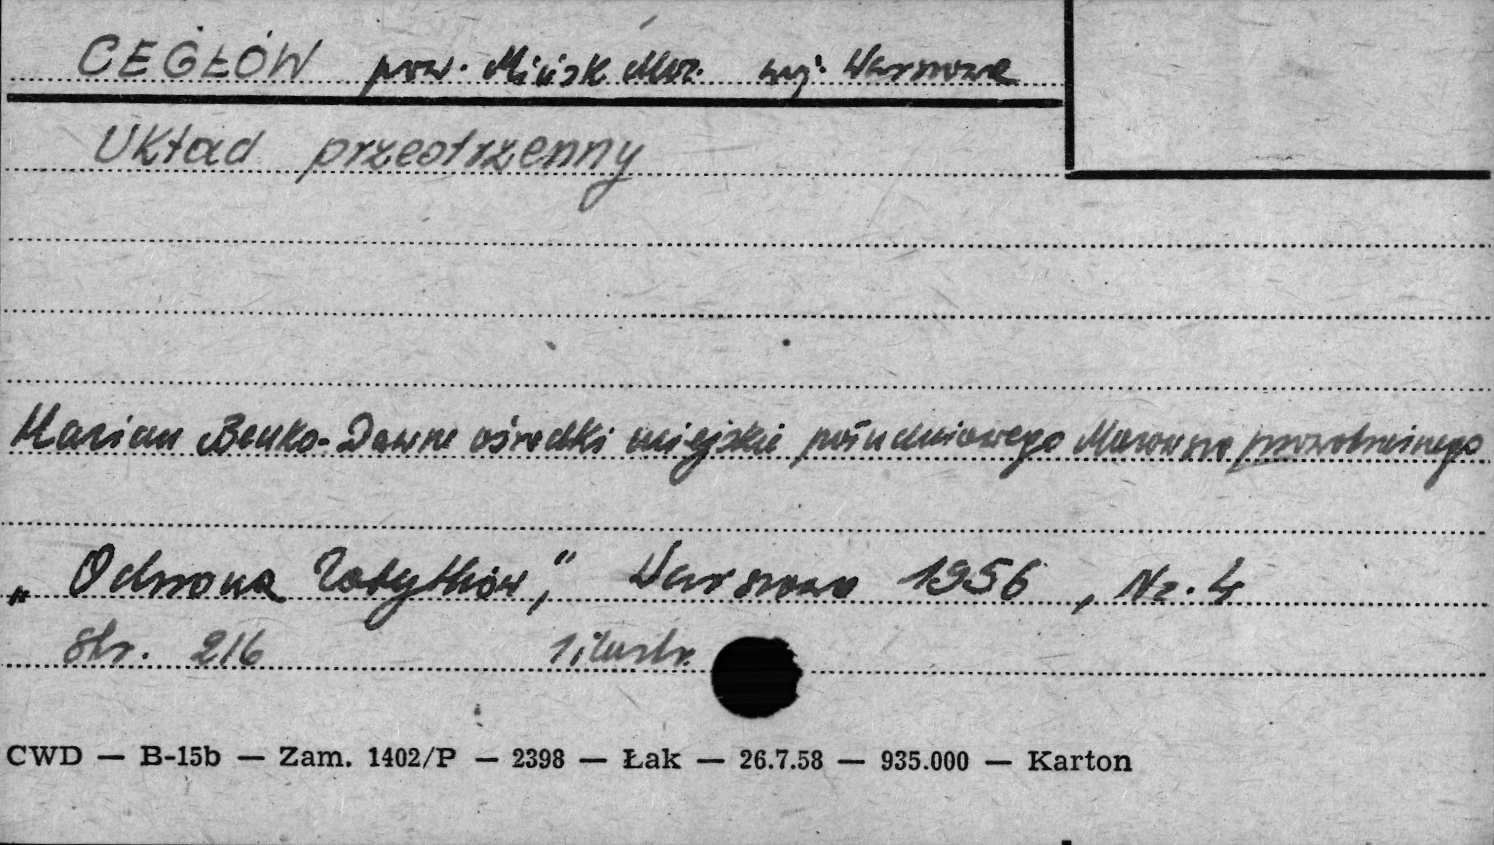 CEGŁÓW pow. Mińsk Maz. woj. Warszawa
Układ przestrzenny
Marian Benko - Dawne ośrodki miejskie południowego Mazowsza prawobrzeżnego
„Ochrona Zabytków," Warszawa 1956, Nr. 4
str. 216 1 ilustr.
CWD — B-15b — Zam. 1402/P — 2398 — Łak — 26.7.58 — 935.000 — Karton